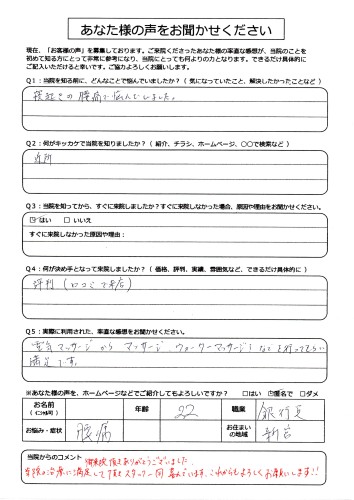 あなた様の声をお聞かせください
現在、「お客様の声」を募集しております。ご来院くださったあなた様の率直な感想が、当院のことを
初めて知る方にとって非常に参考になり、当院にとっても何よりの力となります。できるだけ具体的に
ご記入いただけると幸いです。ご協力よろしくお願いします。
Q1：当院を知る前に、どんなことで悩んでいましたか？（ 気になっていたこと、解決したかったことなど ）
寝起きの腰痛で悩んでいました。
Q2：何がキッカケで当院を知りましたか？（ 紹介、チラシ、ホームページ、〇〇で検索など ）
近所
Q3：当院を知ってから、すぐに来院しましたか？すぐに来院しなかった場合、原因や理由をお聞かせください。
☑はい □ いいえ
すぐに来院しなかった原因や理由：
Q4：何が決め手となって来院しましたか？（ 価格、評判、実績、雰囲気など、できるだけ具体的に ）
評判（口コミで来店）
Q5：実際に利用された、率直な感想をお聞かせください。
電気マッサージから マッサージ、ウォーターマッサージなどを行ってもらい
満足です。
※あなた様の声を、ホームページなどでご紹介してもよろしいですか？ □はい ☑匿名で □ダメ
お名前
（イニシャル可）
年齢 22 職業 銀行員
お悩み・症状 腰痛 お住まい
の地域 新宮
当院からのコメント
御来院頂きありがとうございました。
当院の治療に満足して頂きスタッフ一同 喜んでいます。これからもよろしくお願いします!!